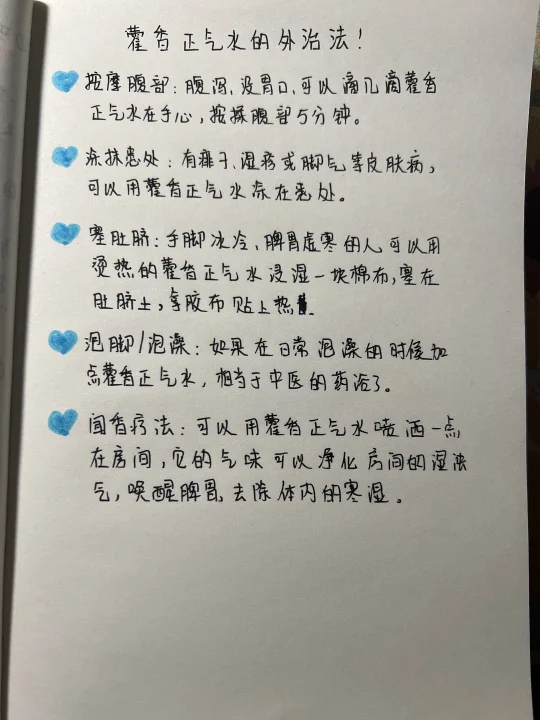 藿香正气水的外治法!
按摩腹部:腹泻、没胃口,可以滴几滴藿香
正气水在手心,按揉腹部5分钟。
涂抹患处:有痱子、湿疹或脚气等皮肤病,
可以用藿香正气水涂在患处。
塞肚脐:手脚冰冷、脾胃虚寒的人可以用
烫热的藿香正气水浸湿一块棉布,塞在
肚脐上,拿胶布贴上热
泡脚/泡澡:如果在日常泡澡的时候加
点藿香正气水,相当于中医的药浴了。
闻香疗法:可以用藿香正气水喷洒一点
在房间,它的气味可以净化房间的湿浊
气,唤醒脾胃,去除体内的寒湿。